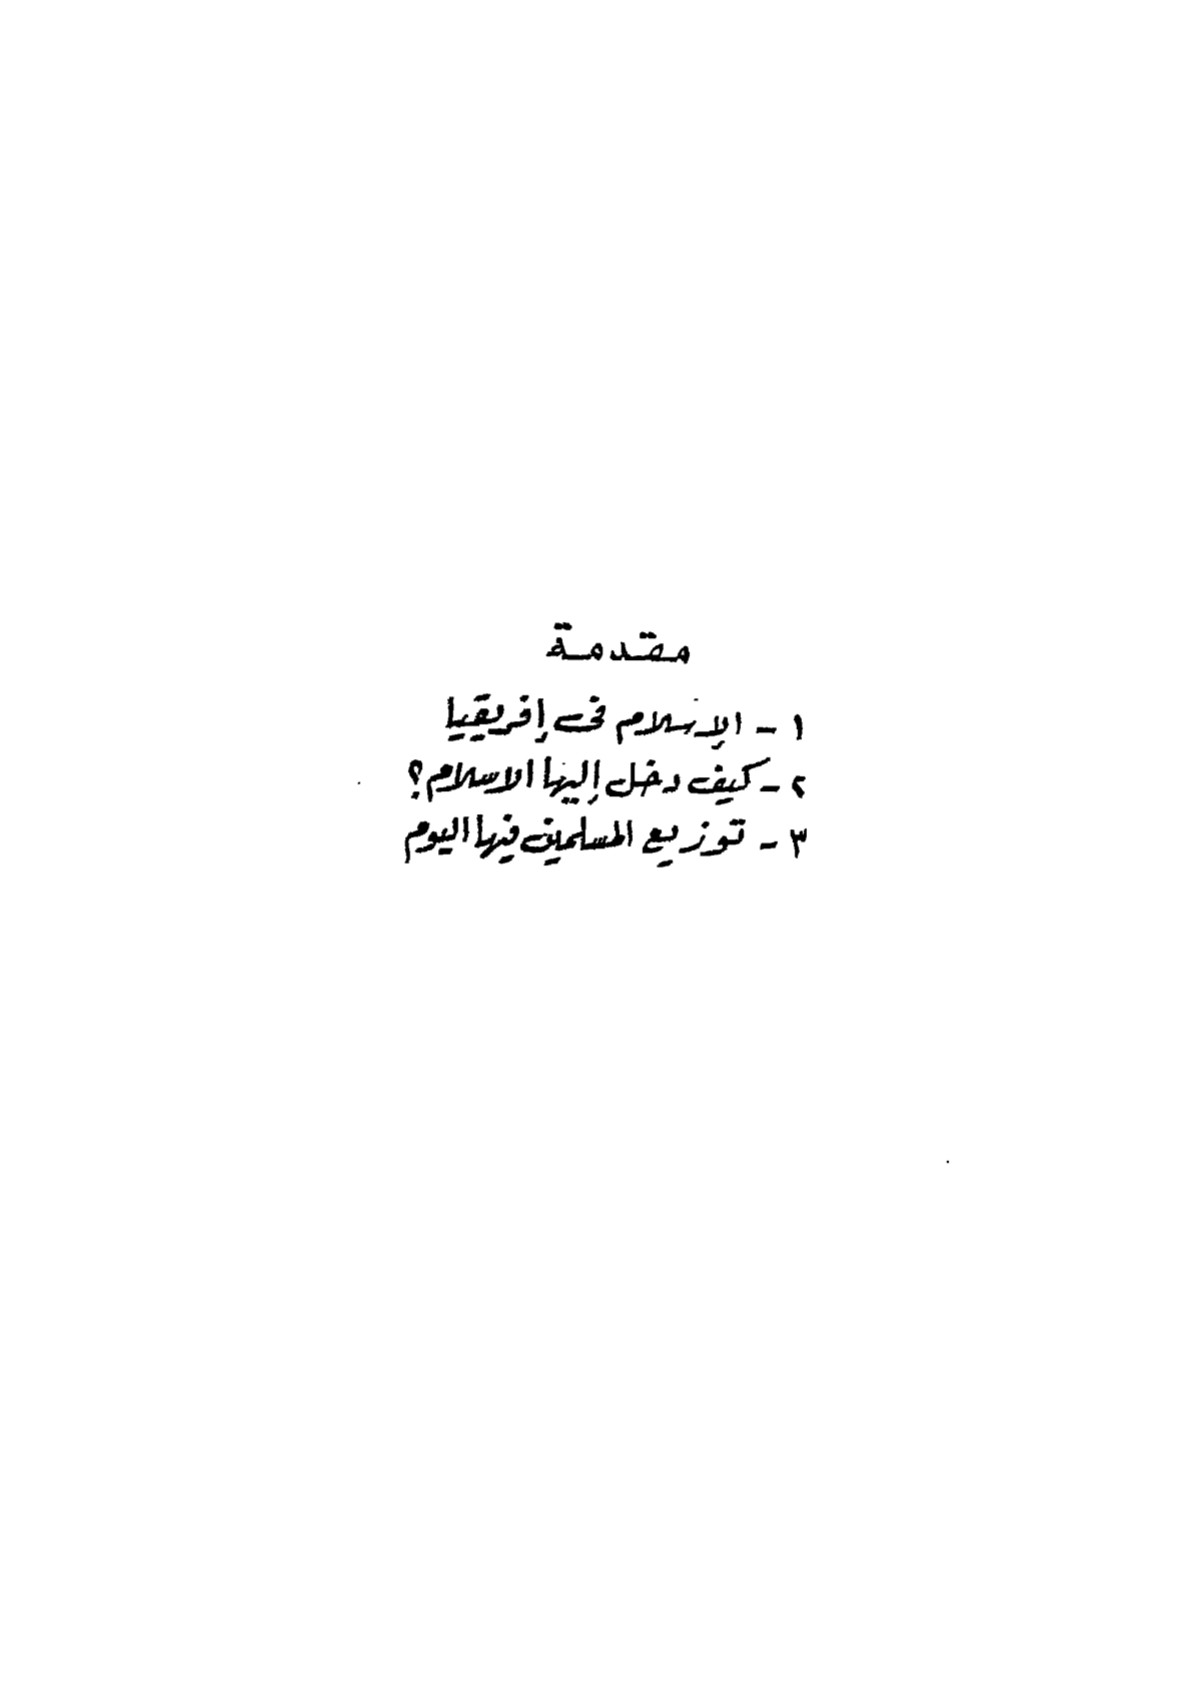 مقدمة
١ - الإسلام فى إفريقيا
٢ - كيف دخل إليها الاسلام؟
٣ - توزيع المسلمين فيها اليوم